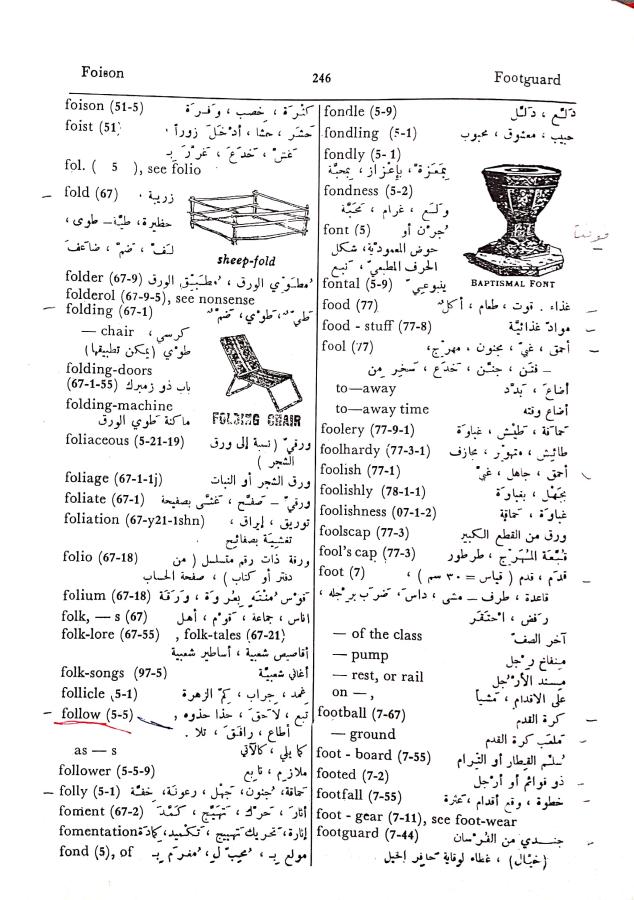 Foison 246 Footguard
foison (51-5) كثرة ، خصب ، وفرة
foist (51) حشر ، حشا ، أدخل زوراً ،
غش ، خدع ، غرر بـ
fol. ( 5 ), see folio
fold (67) زريبة ،
حظيرة ، طية – طوى ،
لف ، ضم ، ضاعف
sheep-fold
folder (67-9) مطوي الورق ، مطبق الورق
folderol (67-9-5), see nonsense
folding (67-1) طي ، طوي ، ضم
— chair كرسي
طوي (يمكن تطبيقها)
folding-doors
(67-1-55) باب ذو زمبرك
folding-machine
ماكنة طوي الورق
FOLDING CHAIR
foliaceous (5-21-19) ورقي (نسبة إلى ورق
الشجر )
foliage (67-1-1j) ورق الشجر أو النبات
foliate (67-1) ورقي – صفح ، غشى بصفيحة
foliation (67-y21-1shn) توريق ، إيراق ،
تغشية بصفائح
folio (67-18) ورقة ذات رقم متسلسل ( من
دفتر أو كتاب ) ، صفحة الحساب
folium (67-18) قوس منته بعروة ، ورقة
folk, — s (67) اناس ، جماعة ، قوم ، أهل
folk-lore (67-55) , folk-tales (67-21)
أقاصيص شعبية ، أساطير شعبية
folk-songs (97-5) أغاني شعبية
follicle (5-1) غمد ، جراب ، كم الزهرة
follow (5-5) تبع ، لاحق ، حذا حذوه ،
أطاع ، رافق ، تلا .
as — s كما يلي ، كالآتي
follower (5-5-9) ملازم ، تابع
folly (5-1) حماقة ، جنون ، جهل ، رعونة ، خفة
foment (67-2) أثار ، حرك ، تهييج ، كمد
fomentation إثارة ، تحريك تهييج ، تكميد ، كمادة
fond (5), of مولع بـ ، محب لـ ، مغرم بـ
fondle (5-9) دلع ، دلل
fondling (5-1) حبيب ، معشوق ، محبوب
fondly (5-1)
بمعزة ، بإعزاز ، بمحبة
fondness (5-2)
ولع ، غرام ، محبة
font (5) جرن أو
حوض المعمودية ، شكل
الحرف المطبعي ، نبع
fontal (5-9) ينبوعي
BAPTISMAL FONT
food (77) غذاء . قوت ، طعام ، أكل
food - stuff (77-8) مواد غذائية
fool (77) أحمق ، غبي ، مجنون ، مهرج ،
– فتن ، جنن ، خدع ، سخر من
to—away أضاع ، بدد
to—away time أضاع وقته
foolery (77-9-1) حماقة ، طيش ، غباوة
foolhardy (77-3-1) طائش ، متهور ، مجازف
foolish (77-1) أحمق ، جاهل ، غبي
foolishly (78-1-1) بجهل ، بغباوة
foolishness (07-1-2) غباوة ، حماقة
foolscap (77-3) ورق من القطع الكبير
fool's cap (77-3) قبعة المهرج ، طرطور
foot (7) قدم ، قدم ( قياس = ٣٠ سم ) ،
قاعدة ، طرف – مشى ، داس ، ضرب برجله ،
رفض ، احتقر
— of the class آخر الصف
— pump منفاخ رجل
— rest, or rail مسند الأرجل
on —, على الاقدام ، مشياً
football (7-67) كرة القدم
— ground ملعب كرة القدم
foot - board (7-55) سلم القطار أو الترام
footed (7-2) ذو قوائم أو أرجل
footfall (7-55) خطوة ، وقع أقدام ، عثرة
foot - gear (7-11), see foot-wear
footguard (7-44) جندي من الفرسان
(خيال) ، غطاء لوقاية حافر الخيل